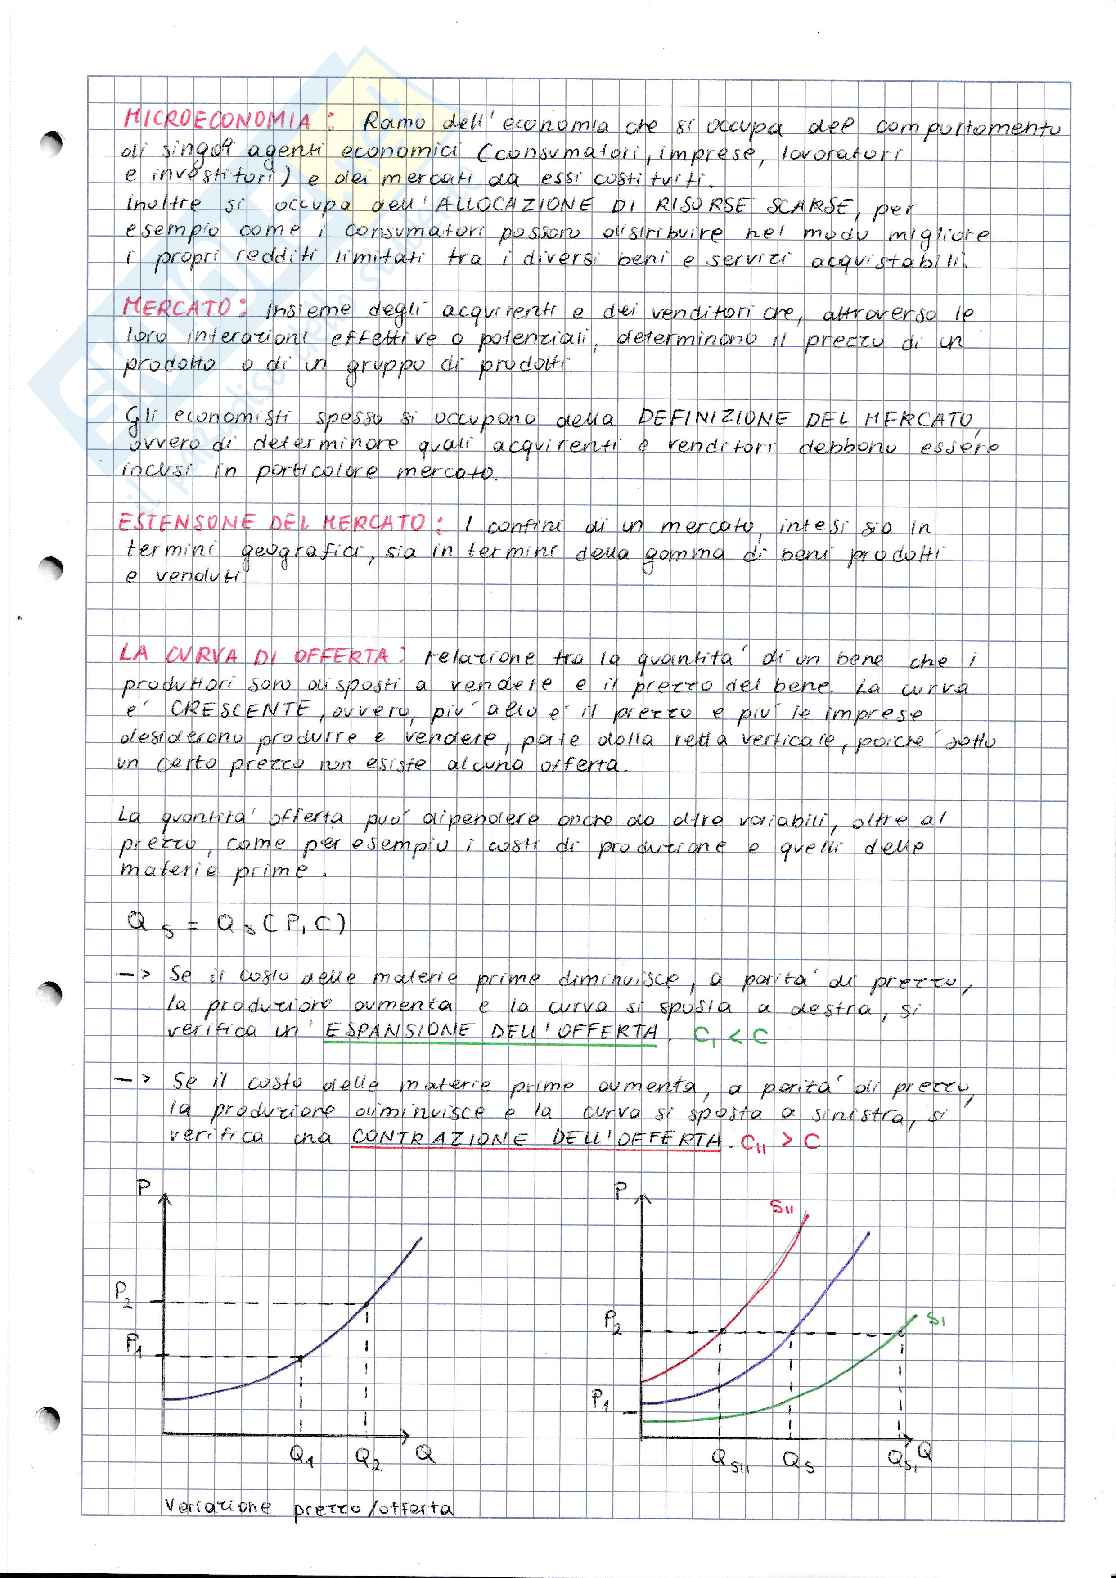 MICROECONOMIA: Ramo dell'economia che si occupa del comportamento
di singoli agenti economici (consumatori, imprese, lavoratori
e investitori) e dei mercati da essi costituiti.
Inoltre si occupa dell'ALLOCAZIONE DI RISORSE SCARSE, per
esempio come i consumatori possono distribuire nel modo migliore
i propri redditi limitati tra i diversi beni e servizi acquistabili.
MERCATO: Insieme degli acquirenti e dei venditori che, attraverso le
loro interazioni effettive o potenziali, determinano il prezzo di un
prodotto o di un gruppo di prodotti
Gli economisti spesso si occupano della DEFINIZIONE DEL MERCATO,
ovvero di determinare quali acquirenti e venditori debbono essere
inclusi in particolare mercato.
ESTENSONE DEL MERCATO: I confini di un mercato, intesi sia in
termini geografici, sia in termini della gamma di beni prodotti
e venduti
LA CURVA DI OFFERTA: relazione tra la quantita' di un bene che i
produttori sono disposti a vendere e il prezzo del bene. La curva
e' CRESCENTE, ovvero, piu' alto e' il prezzo e piu' le imprese
desiderano produrre e vendere, parte dalla retta verticale, poiche' sotto
un certo prezzo non esiste alcuna offerta.
La quantita' offerta puo' dipendere anche da altre variabili, oltre al
prezzo, come per esempio i costi di produzione e quelli delle
materie prime.
Q s = Q s (P, C)
-> Se il costo delle materie prime diminuisce, a parita' di prezzo,
la produzione aumenta e la curva si sposta a destra, si
verifica un' ESPANSIONE DELL'OFFERTA. C₁ < C
-> Se il costo delle materie prime aumenta, a parita' di prezzo,
la produzione diminuisce e la curva si sposta a sinistra, si
verifica una CONTRAZIONE DELL'OFFERTA. C₁₁ > C
P
P₂
P₁
Q₁ Q₂ Q
Variazione prezzo/offerta
P
S₁₁
S₁
P₂
P₁
Qs₁₁ Qs Qs₁ Q